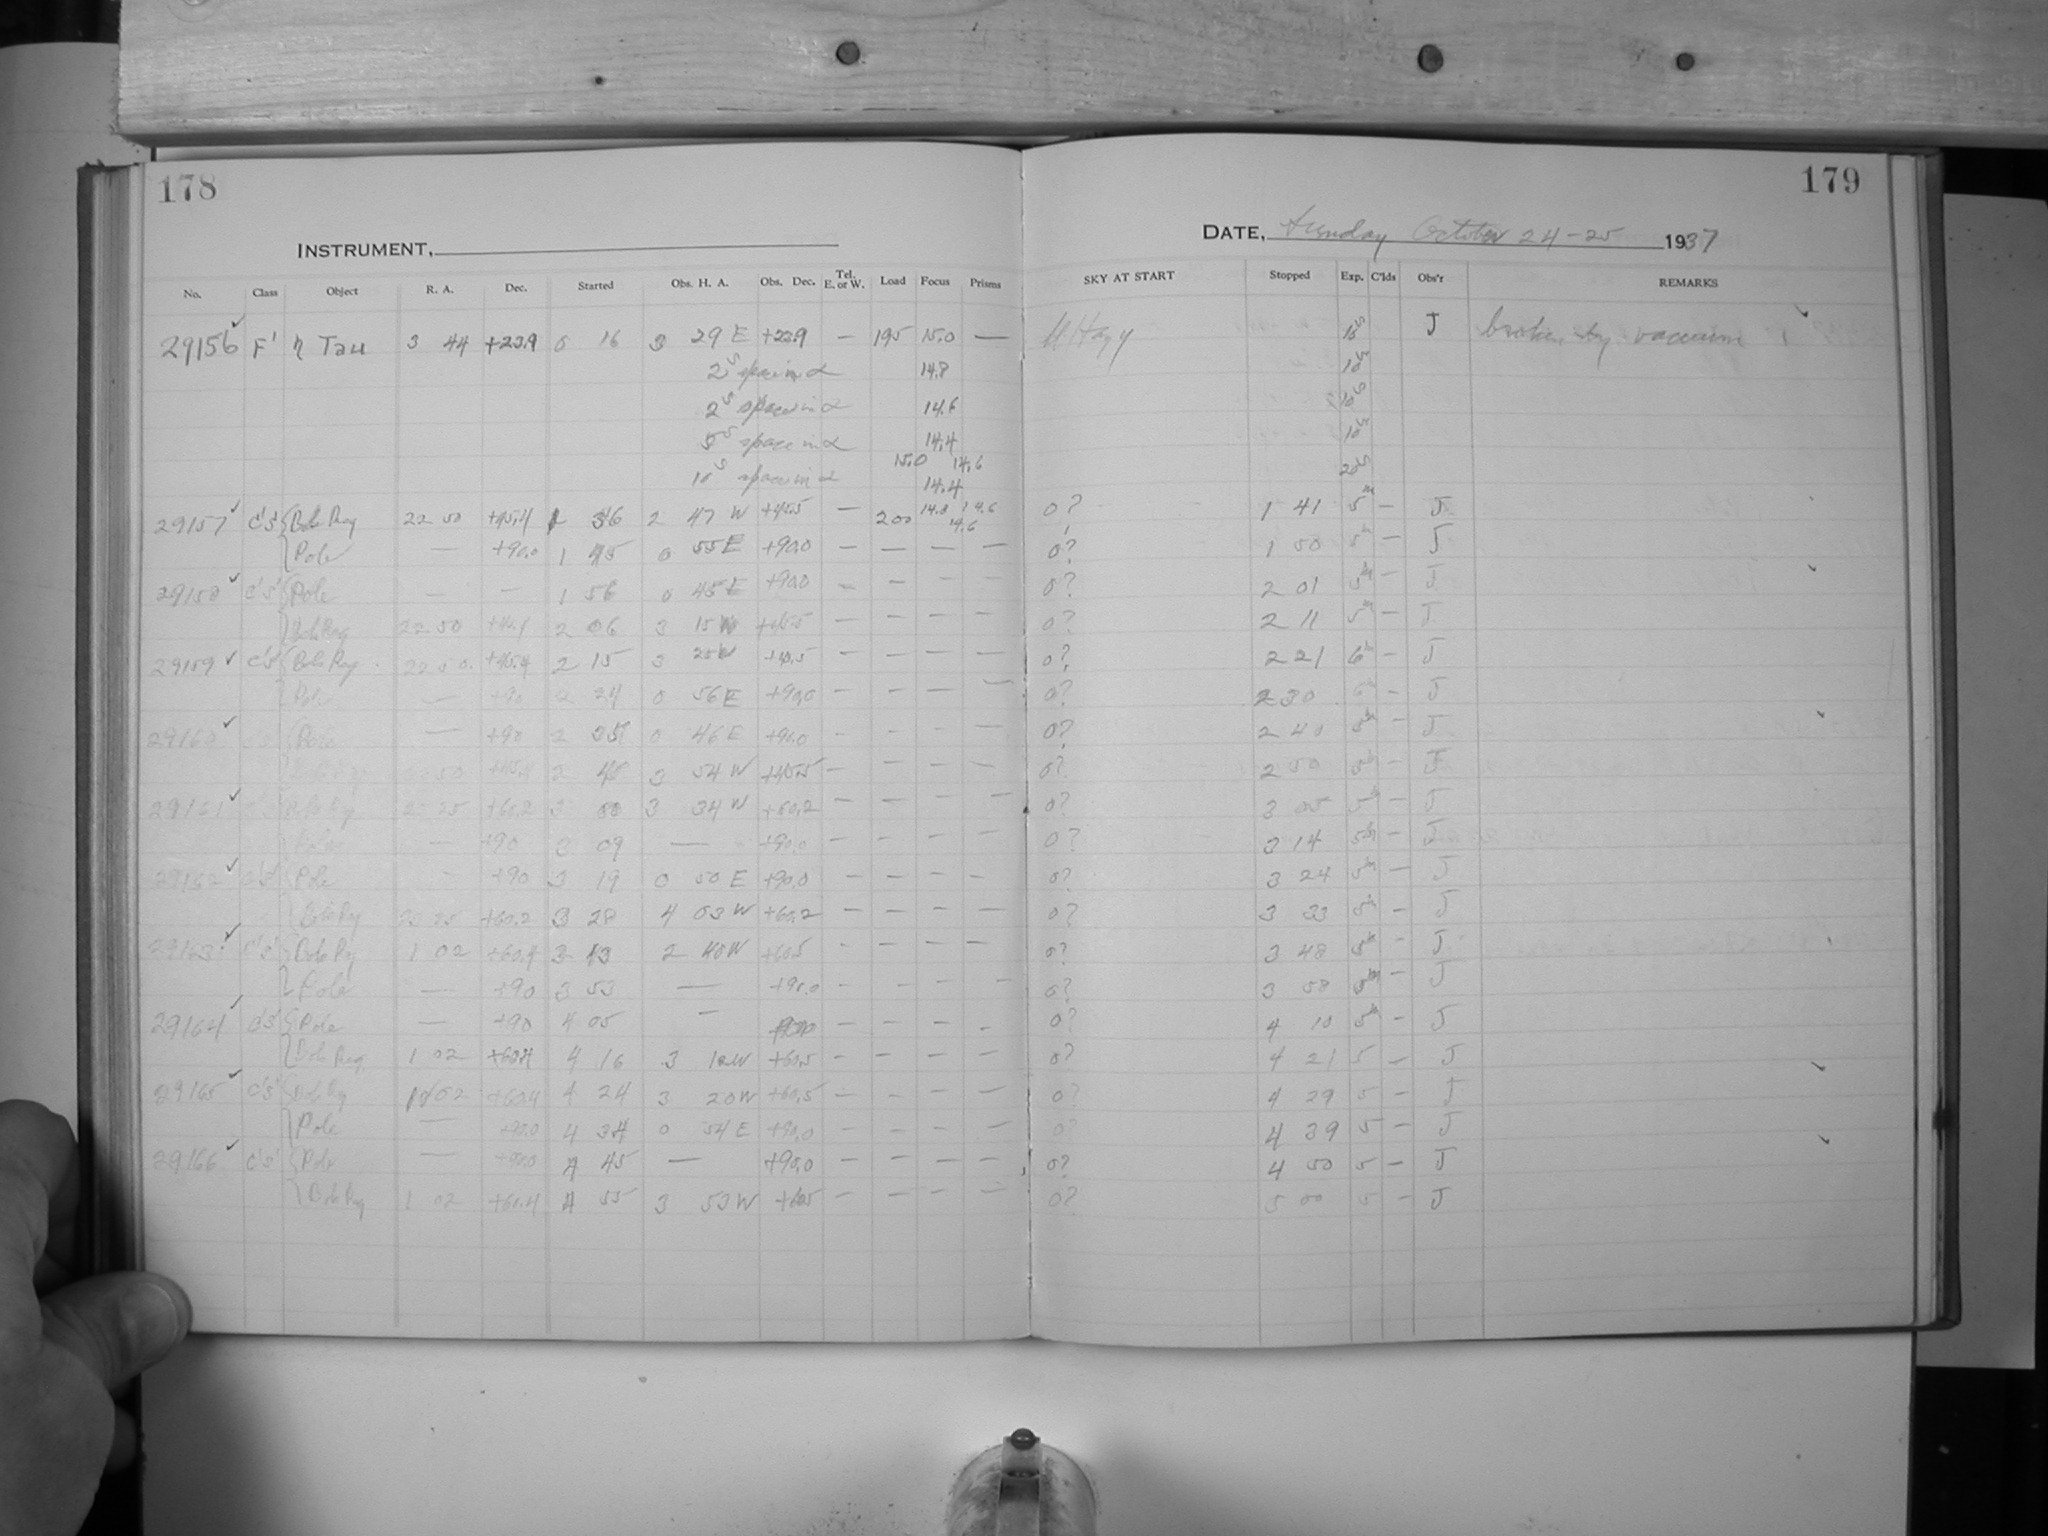 178
179
INSTRUMENT,
DATE, Sunday October 24-25 1937
No. Class Object R. A. Dec. Started Obs. H. A. Obs. Dec. Tel. E. or W. Load Focus Prisms SKY AT START Stopped Exp. C'lds Obs'r REMARKS
29156 F' η Tau 3 44 +23.9 0 16 3 29 E +23.9 — 195 15.0 — Hazy 10s J broken by vacuum
2s space in α 14.8 10s
2s space in α 14.6 10s
5s space in α 14.4 10s
15.0 14.6
10s space in α 14.4 20s
29157 C'S' 22 50 +45.4 1 36 2 47 W +45.5 — 200 14.8 14.6 14.6 0? 1 41 5m — J
Pole — +90.0 1 45 0 55 E +90.0 — — — — 0? 1 50 5m — J
29158 C'S' Pole — — 1 56 0 45 E +90.0 — — — — 0? 2 01 5m — J
22 50 2 06 3 15 W +45.5 — — — — 0? 2 11 5m — J
29159 C'S' 22 50 +45.4 2 15 3 25 W +45.5 — — — — 0? 2 21 6m — J
Pole — +90 2 24 0 56 E +90.0 — — — — 0? 2 30 — J
29160 C'S' Pole — +90 2 35 0 46 E +90.0 — — — — 0? 2 40 5m — J
+45.4 2 45 3 54 W +45.5 — — — — 0? 2 50 5m — J
29161 +60.2 3 00 3 34 W +60.2 — — — — 0? 3 05 5m — J
Pole — +90 3 09 — +90.0 — — — — 0? 3 14 5m — J
29162 C'S' Pole — +90 3 19 0 50 E +90.0 — — — — 0? 3 24 5m — J
+60.2 3 28 4 03 W +60.2 — — — — 0? 3 33 5m — J
29163 C'S' 1 02 +60.4 3 43 2 40 W +60.5 — — — — 0? 3 48 5m — J
Pole — +90 3 53 — +90.0 — — — — 0? 3 58 5m — J
29164 C'S' Pole — +90 4 05 — — — — — 0? 4 10 5m — J
1 02 +60.4 4 16 3 12 W +60.5 — — — — 0? 4 21 5 — J
29165 C'S' 1 02 +60.4 4 24 3 20 W +60.5 — — — — 0? 4 29 5 — J
Pole — +90.0 4 34 0 54 E +90.0 — — — — 0? 4 39 5 — J
29166 C'S' Pole — +90.0 4 45 — +90.0 — — — — 0? 4 50 5 — J
1 02 +60.4 4 55 3 53 W +60.5 — — — — 0? 5 00 5 — J